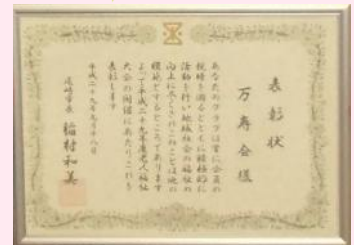 表彰状
万寿会様
あなたのクラブは常に会員の
親睦を図るとともに積極的に
活動を行い地域社会の福祉の
向上に尽くされたことは他の
模範とするところであります
よって平成二十九年度老人福祉
大会の開催にあたりこれを
表彰します
平成二十九年九月十八日
尼崎市長 稲村和美